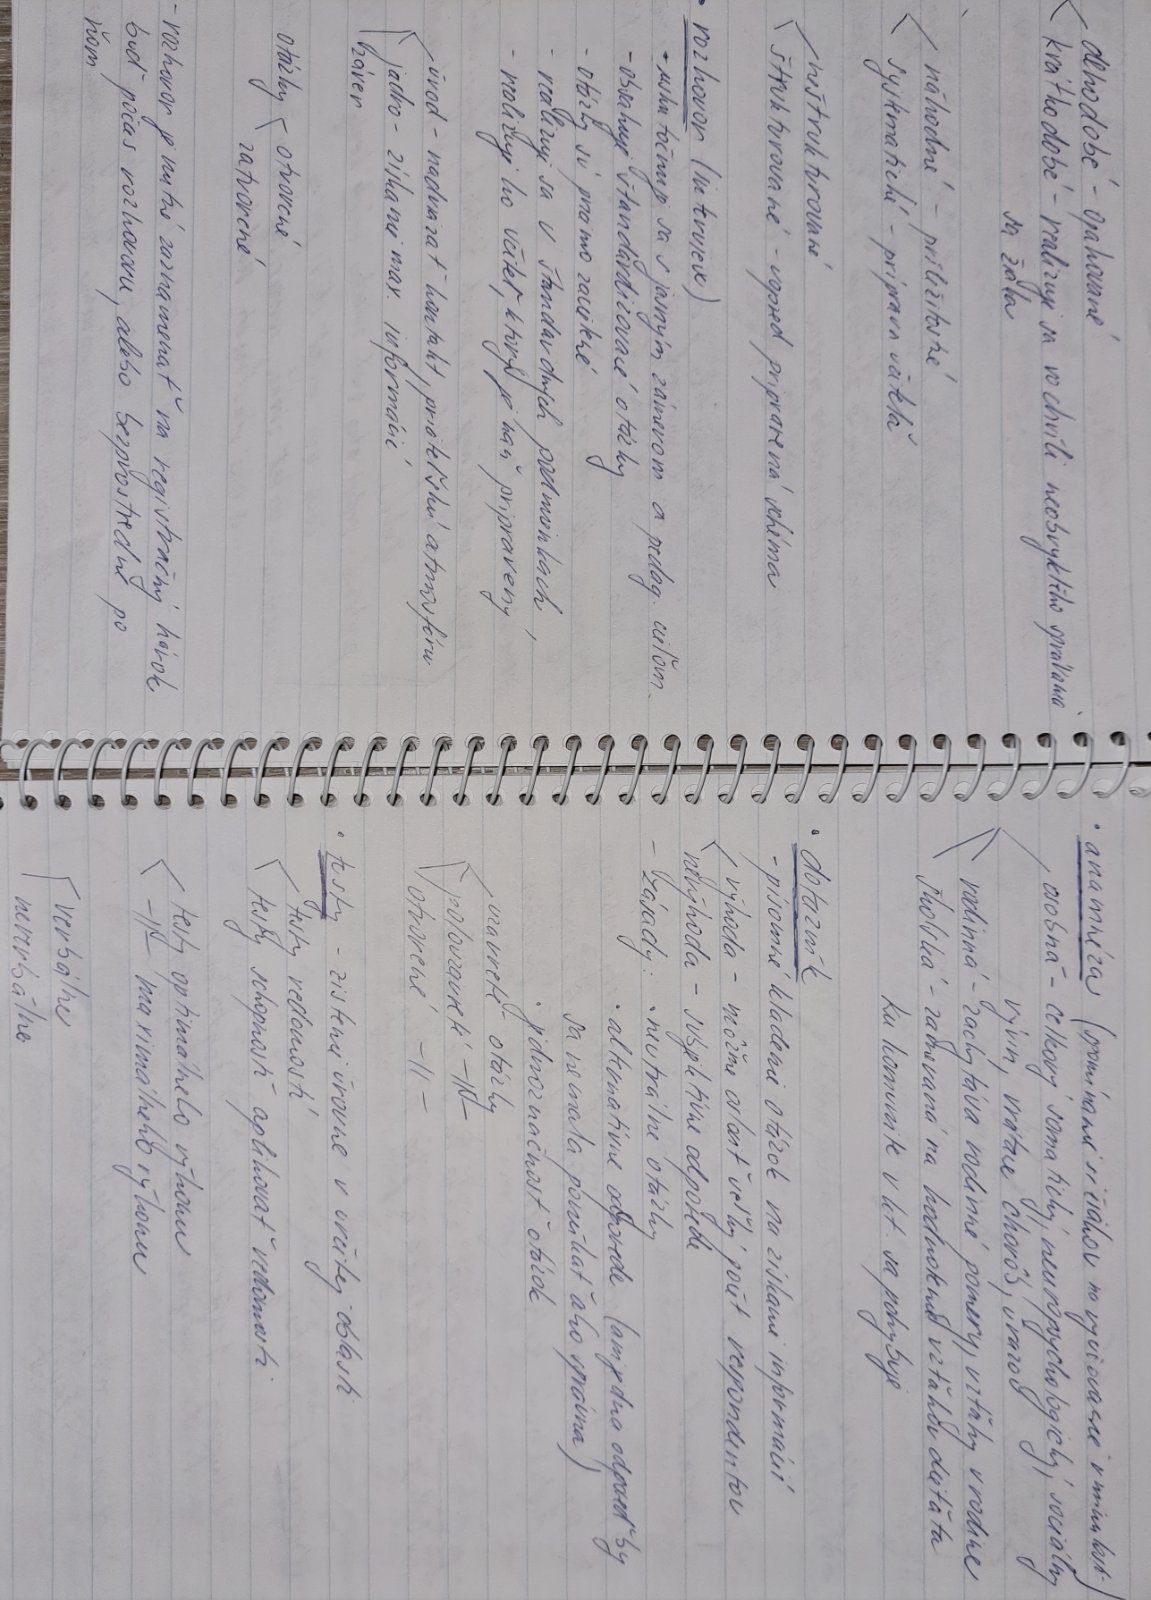 dlhodobé - opakované
krátkodobé - realizuje sa vo chvíli neobvyklého správania
sa žiaka
náhodné - príležitostné
systematické - príprava učiteľa
neštruktúrované
štruktúrované - vopred pripravená schéma
• rozhovor (interview)
sa s jasným zámerom a pedag. cieľom
- obsahuje štandardizované otázky
- otázky sú priamo zacielené
- realizuje sa v štandardných podmienkach,
- realizuje ho učiteľ, ktorý je naň pripravený
úvod - nadviazať kontakt, priateľskú atmosféru
jadro - získanie max. informácií
záver
otázky
otvorené
zatvorené
- rozhovor je nutné zaznamenať na registračný hárok
buď počas rozhovoru, alebo bezprostredne po
ňom
• anamnéza
osobná - celkový somatický, neuropsychologický, sociálny
vývin, vrátane chorôb, úrazov
rodinná - zachytáva rodinné pomery, vzťahy v rodine
školská - zameraná na hodnotenie vzťahov dieťaťa
ku komunite v kt. sa pohybuje
• dotazník
- písomné kladenie otázok na získanie informácií
výhoda - možné osloviť veľký počet respondentov
nevýhoda - subjektívne odpovede
- zásady: • neutrálne otázky
• alternatívne odpovede (ani jedna odpoveď by
sa nemala ponúkať ako správna)
• jednoznačnosť otázok
uzavreté otázky
polouzavreté -||-
otvorené -||-
• testy - zistenie úrovne v určitej oblasti
testy vedomostí
testy schopností aplikovať vedomosti
testy optimálneho výkonu
-||- maximálneho výkonu
verbálne
neverbálne